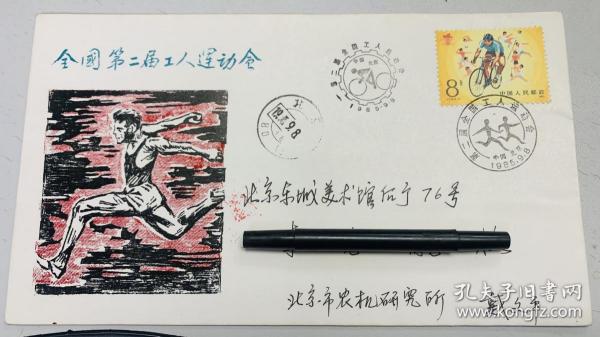 全國第二届工人运动会
第二届全国工人运动会
中国 北京
1985.9.8
北京
1985.9.8
8分
中国人民邮政
第二届全国工人运动会
中国 北京
1985.9.8
北京东城美术馆后厅76号
北京市农机研究所
孔夫子旧书网
kongfz.com